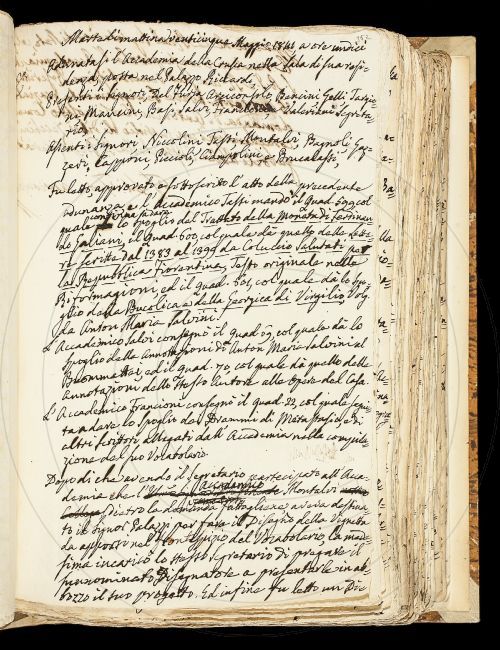 Martedi mattina venticinque Maggio 1841 a ore undici
Adunatasi l'Accademia della Crusca nella Sala di sua resi-
denza posta nel Palazzo Riccardi.
Presenti i Signori Del Furia Arciconsolo, Bencini Gelli Targio-
ni Manzini, Basi, Salvi Francioni Valeriani Segreta-
rio
Assenti i Signori Niccolini Tassi Montalvi Bagnoli Gaz-
zeri, Capponi Puccioli, Ciampolini e Brucalassi.
Fu letto, approvato e sottoscritto l'atto della precedente
Adunanza e l'Accademico Tassi mandò il Quad. 599 col
quale lo spoglio del Trattato della Moneta di Ferdinan-
do Galiani, il Quad. 600, col quale dà quello delle lette-
re scritte dal 1383 al 1399 da Coluccio Salutati per
la Repubblica Fiorentina, Testo originale nelle
Riformagioni, ed il quad. 601, col quale dà lo spo-
glio della Bucolica e della Georgica di Virgilio, Volg.
da Anton Maria Salvini.
L'Accademico Salvi consegnò il quad. 69 col quale dà lo
spoglio delle Annotazioni di Anton Maria Salvini al
ed il quad. 70, col quale dà quello delle
Annotazioni dello stesso Autore alle Opere del Casa
L'Accademico Francioni consegnò il quad. 22, col quale segui-
tando lo spoglio dei Drammi di Metastasio e di
altri scrittori allegati dall'Accademia nella compila-
zione del suo Vocabolario.
Dopo di che avendo il Segretario partecipato all'Acca-
demia che l' Accademico Montalvi
dietro la domanda fattagliene aveva destina-
to il Signor Palazzi per fare il Disegno della Vignetta
da apporsi nel frontespizio del Vocabolario, la mede-
sima incaricò lo stesso Segretario di pregare il
prenominato Disegnatore a presentarle in ab-
bozzo il suo progetto. Ed infine fu letto un Dis-